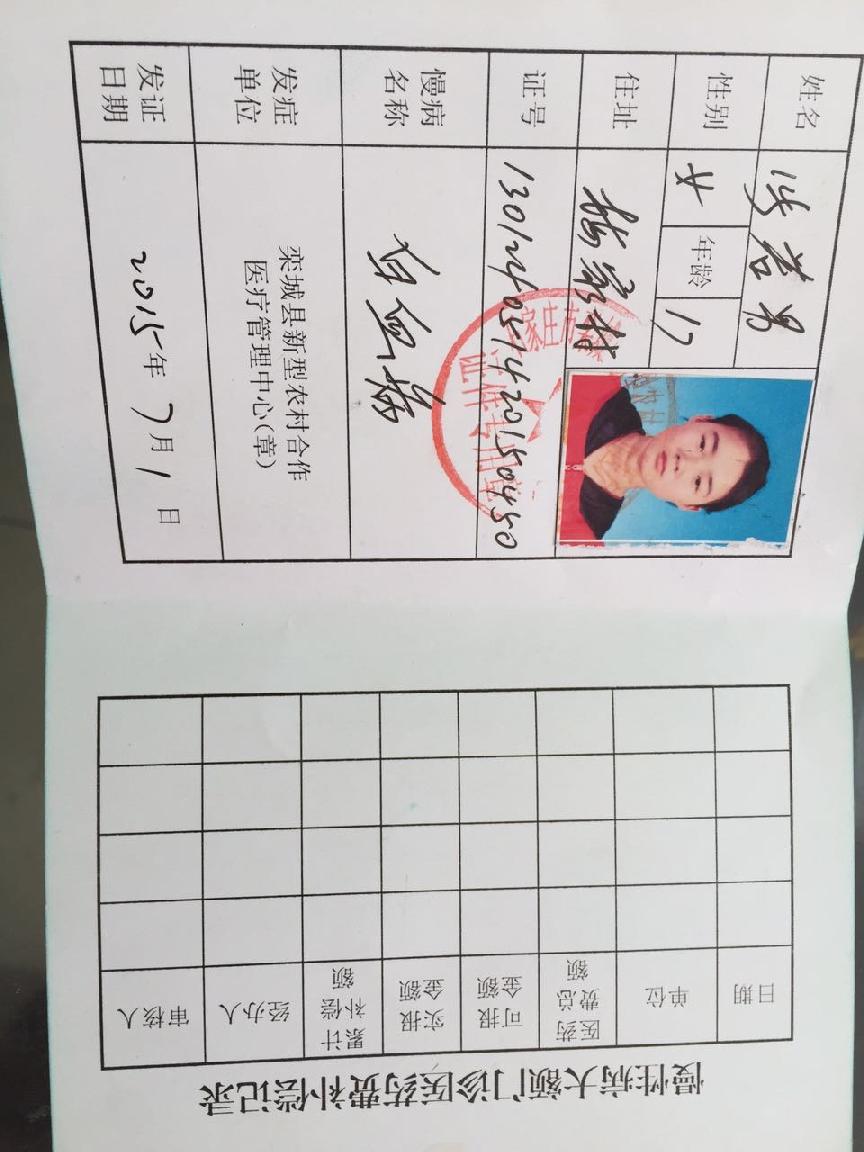 姓名 冯若男
性别 女 年龄 17
住址 家村
证号 130124051420150450
慢病
名称 白血病
发症
单位
栾城县新型农村合作
医疗管理中心(章)
发证
日期
2015年7月1日
家庄市
证件专用章
慢性病大额门诊医药费补偿记录
日期
单位
医药
费总
额
可报
金额
实报
金额
累计
补偿
额
经办人
审核人